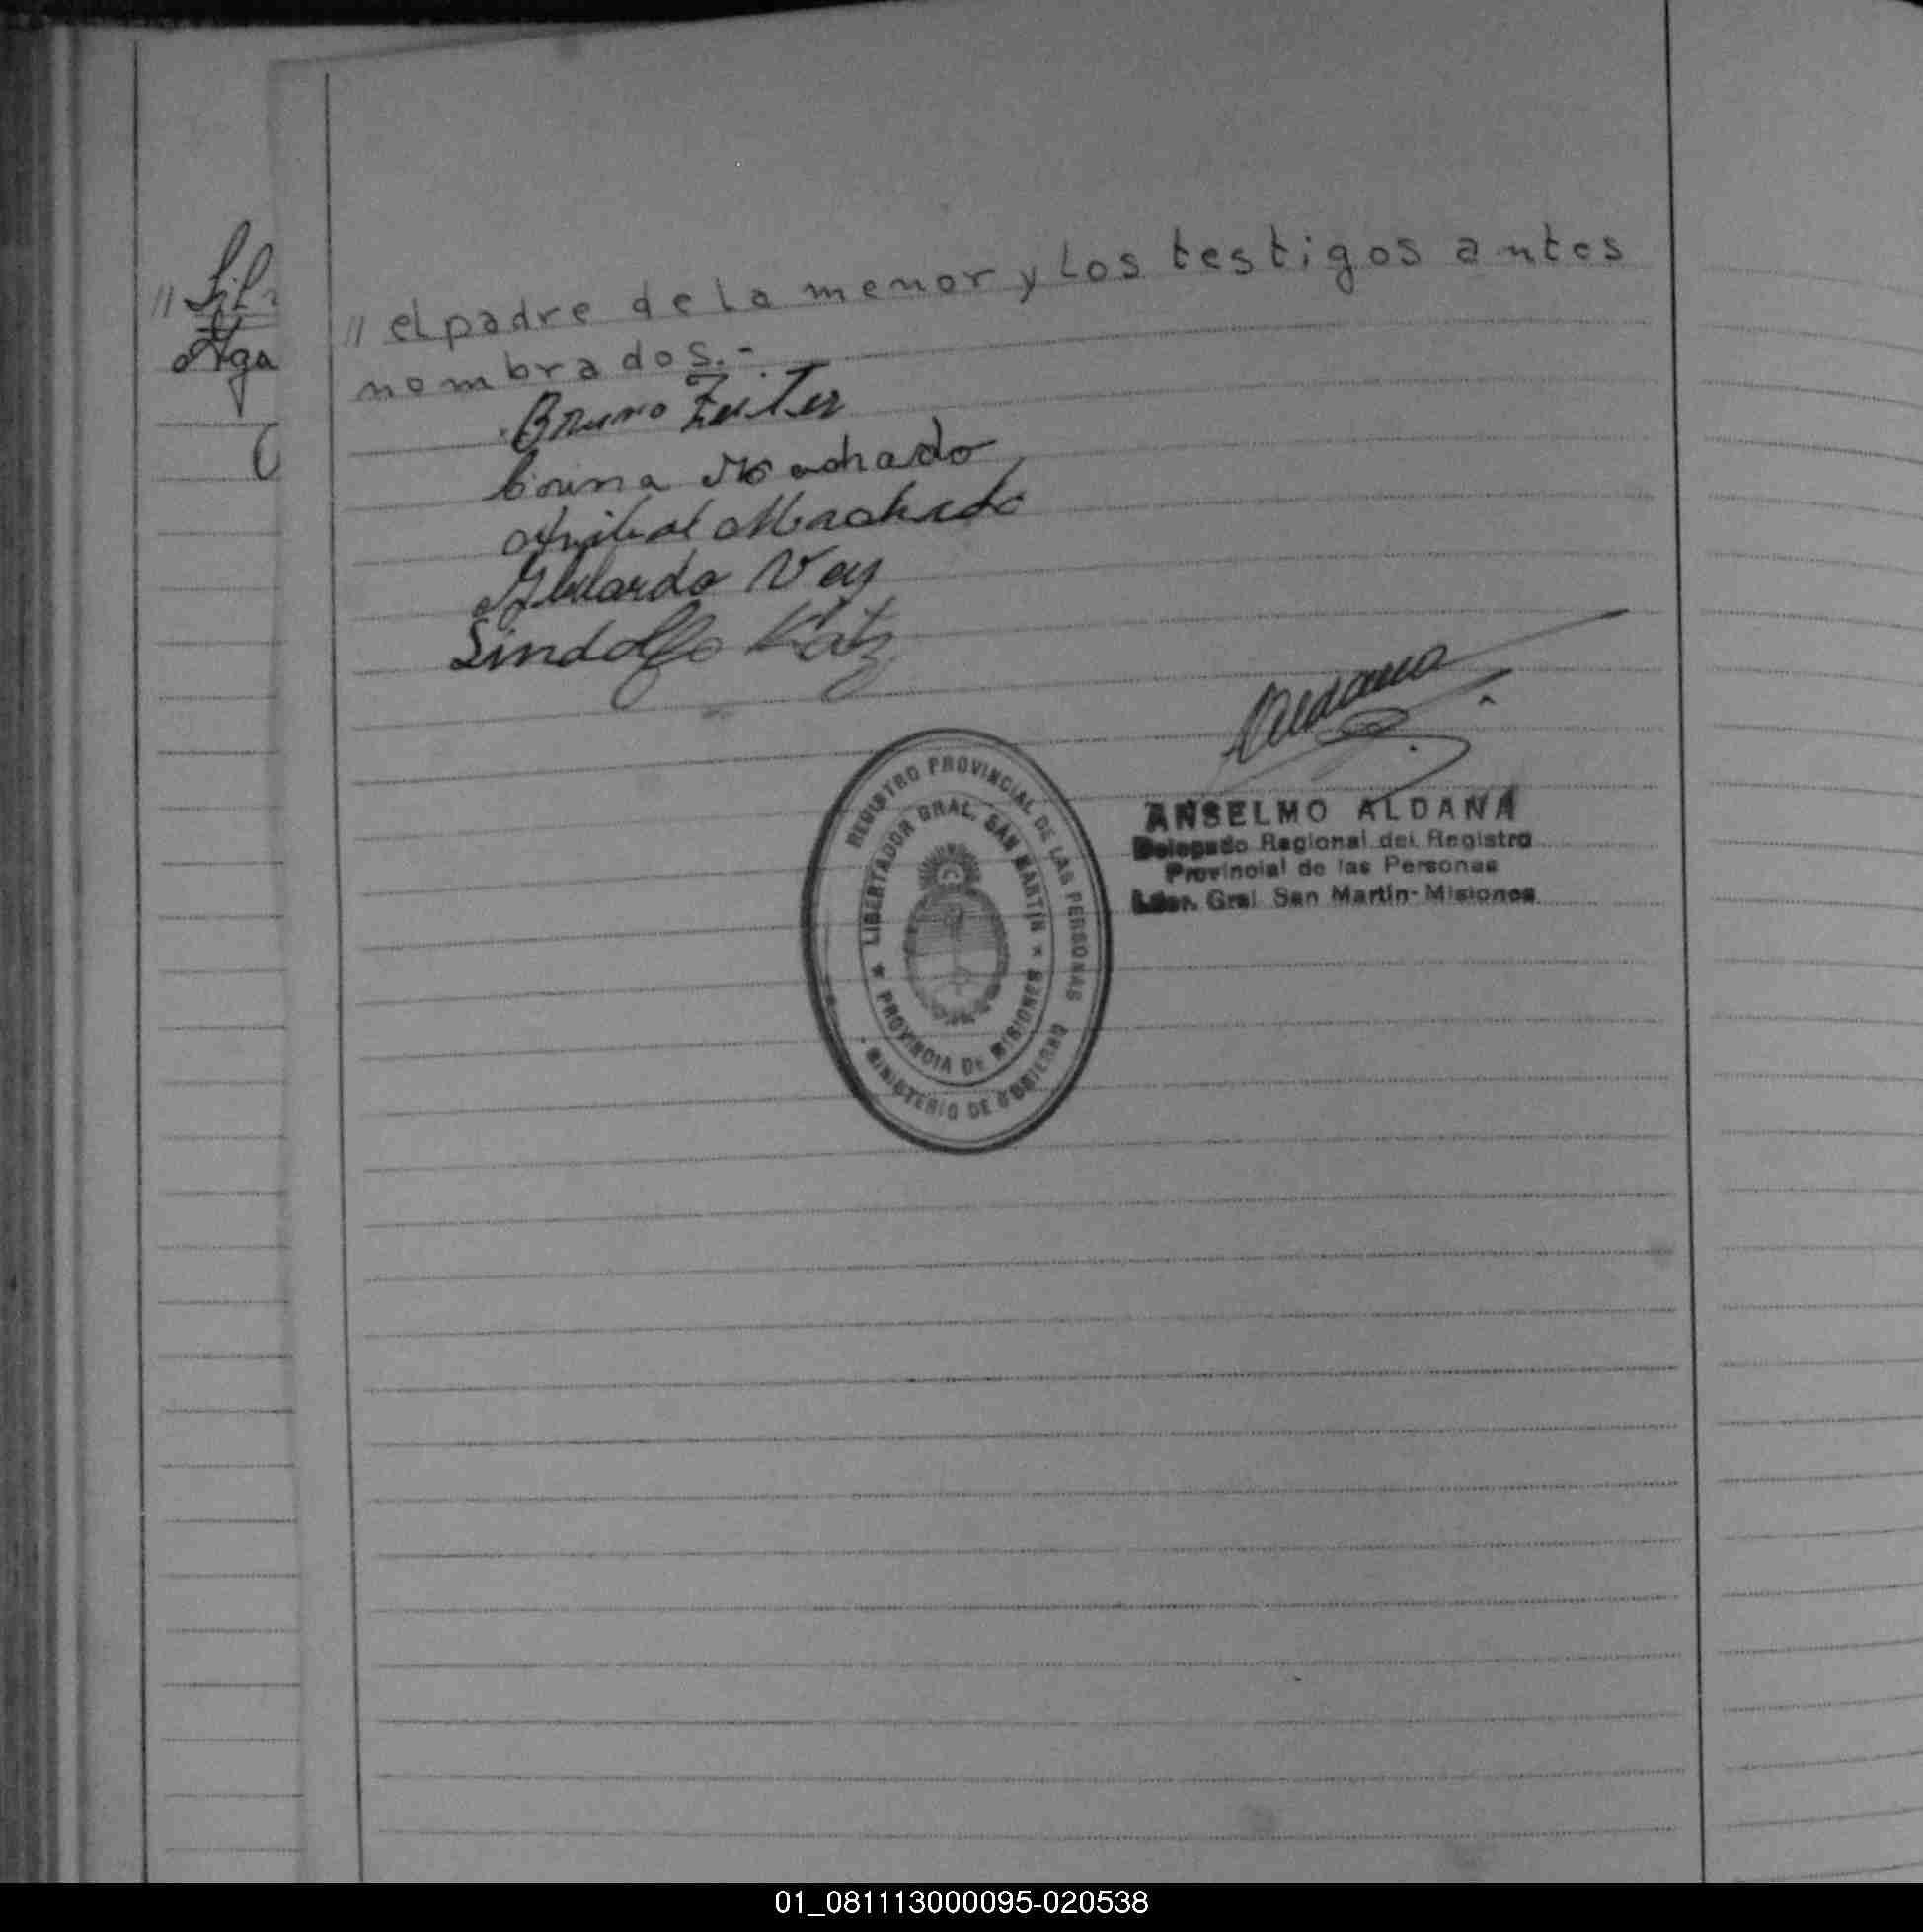 // Sil
Aga
// el padre de la menor y los testigos antes
nombrados.-
Bruno
Machado
Anibal Machado
Lindolfo Katz
Aldana
ANSELMO ALDANA
Delegado Regional del Registro
Provincial de las Personas
Lder. Gral. San Martín-Misiones
REGISTRO PROVINCIAL DE LAS PERSONAS
MINISTERIO DE GOBIERNO
LIBERTADOR GRAL. SAN MARTIN
PROVINCIA DE MISIONES
01_081113000095-020538